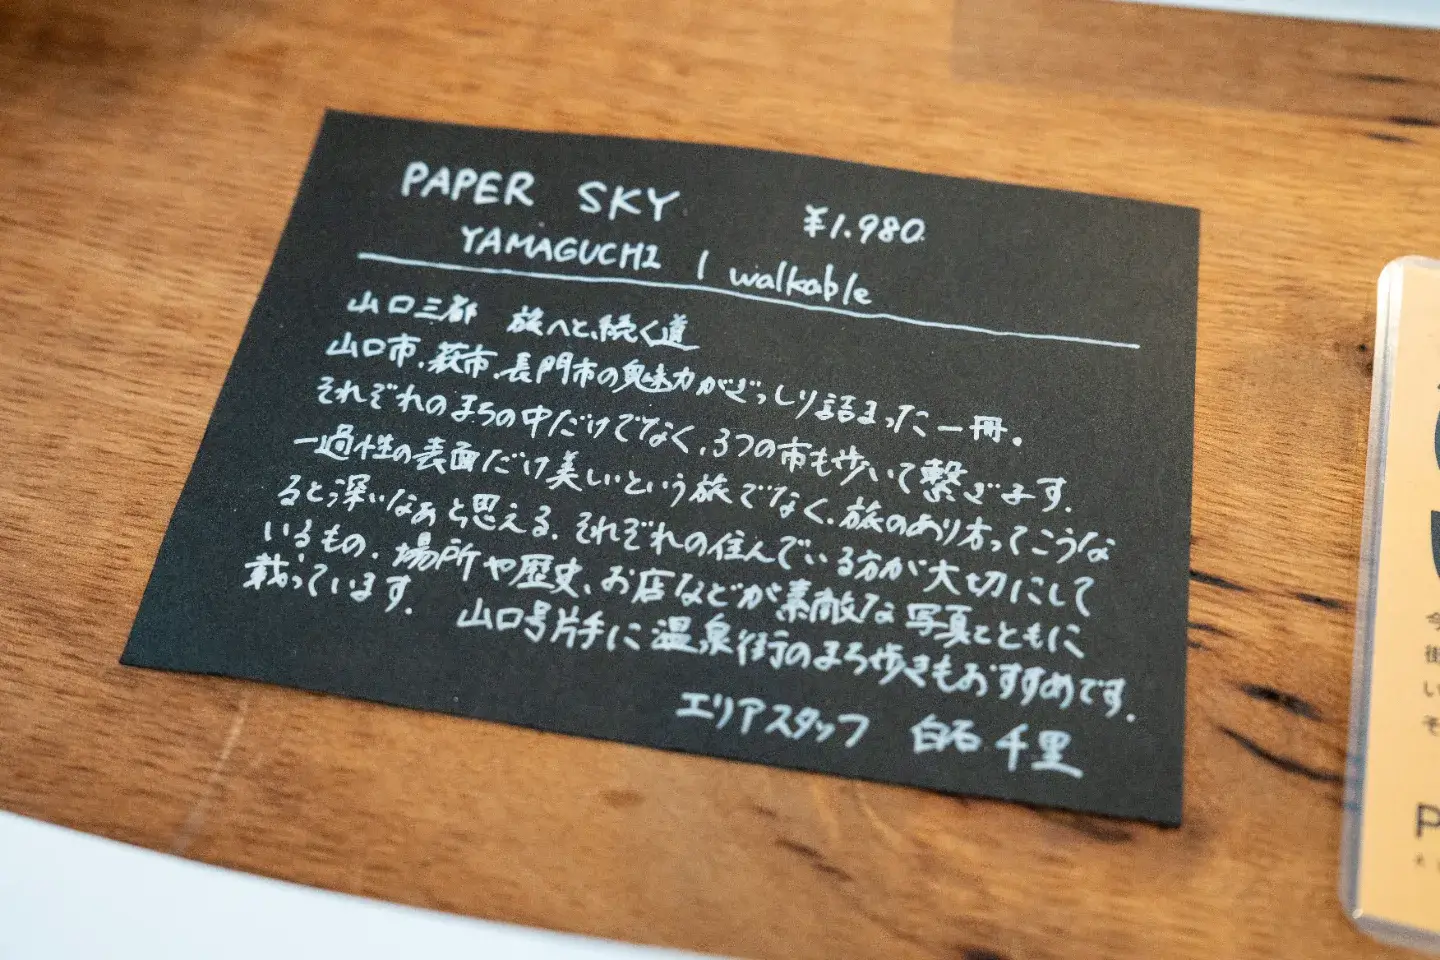 PAPER SKY ¥1,980
YAMAGUCHI | walkable
山口三都 旅へと、続く道
山口市、萩市、長門市の魅力がぎっしり詰まった一冊。
それぞれのまちの中だけでなく、3つの市も歩いて繋ぎます。
一過性の表面だけ美しいという旅でなく、旅のあり方ってこうな
ると深いなぁと思える、それぞれの住んでいる方が大切にして
いるもの、場所や歴史、お店などが素敵な写真とともに
載っています。 山口号片手に温泉街のまち歩きもおすすめです。
エリアスタッフ 白石 千里
今
街
い
そ
P